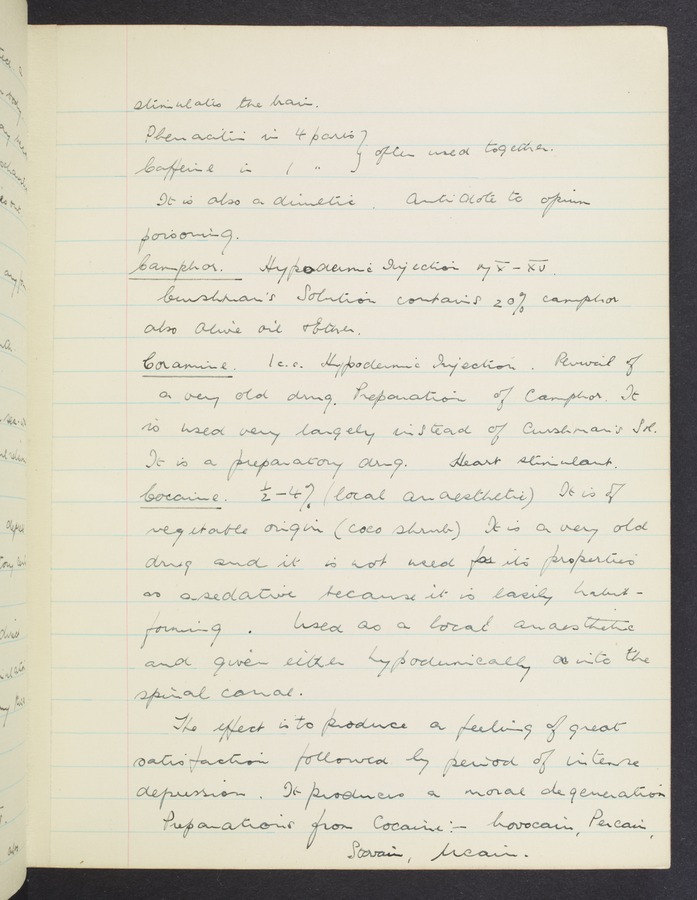 stimulates the brain.
Phenacitin in 4 parts } often used together.
Caffeine in 1 " }
It is also a diuretic. Antidote to opium
poisoning.
Camphor. Hypodermic Injection ɱ X – XV.
Curshman's Solution contains 20% camphor
also Olive oil & Ether.
Coramine. 1 c.c. Hypodermic Injection. Revival of
a very old drug. Preparation of Camphor. It
is used very largely instead of Curshman's Sol.
It is a preparatory drug. Heart stimulant.
Cocaine. ½–4% (local anaesthetic) It is of
vegetable origin (coco shrub) It is a very old
drug and it is not used for its properties
as a sedative because it is easily habit-
forming. Used as a local anaesthetic
and given either hypodermically or into the
spinal canal.
The effect is to produce a feeling of great
satisfaction followed by period of intense
depression. It produces a moral degeneration
Preparations from Cocaine:– Novocain, Percain,
Stovain, Neucain.